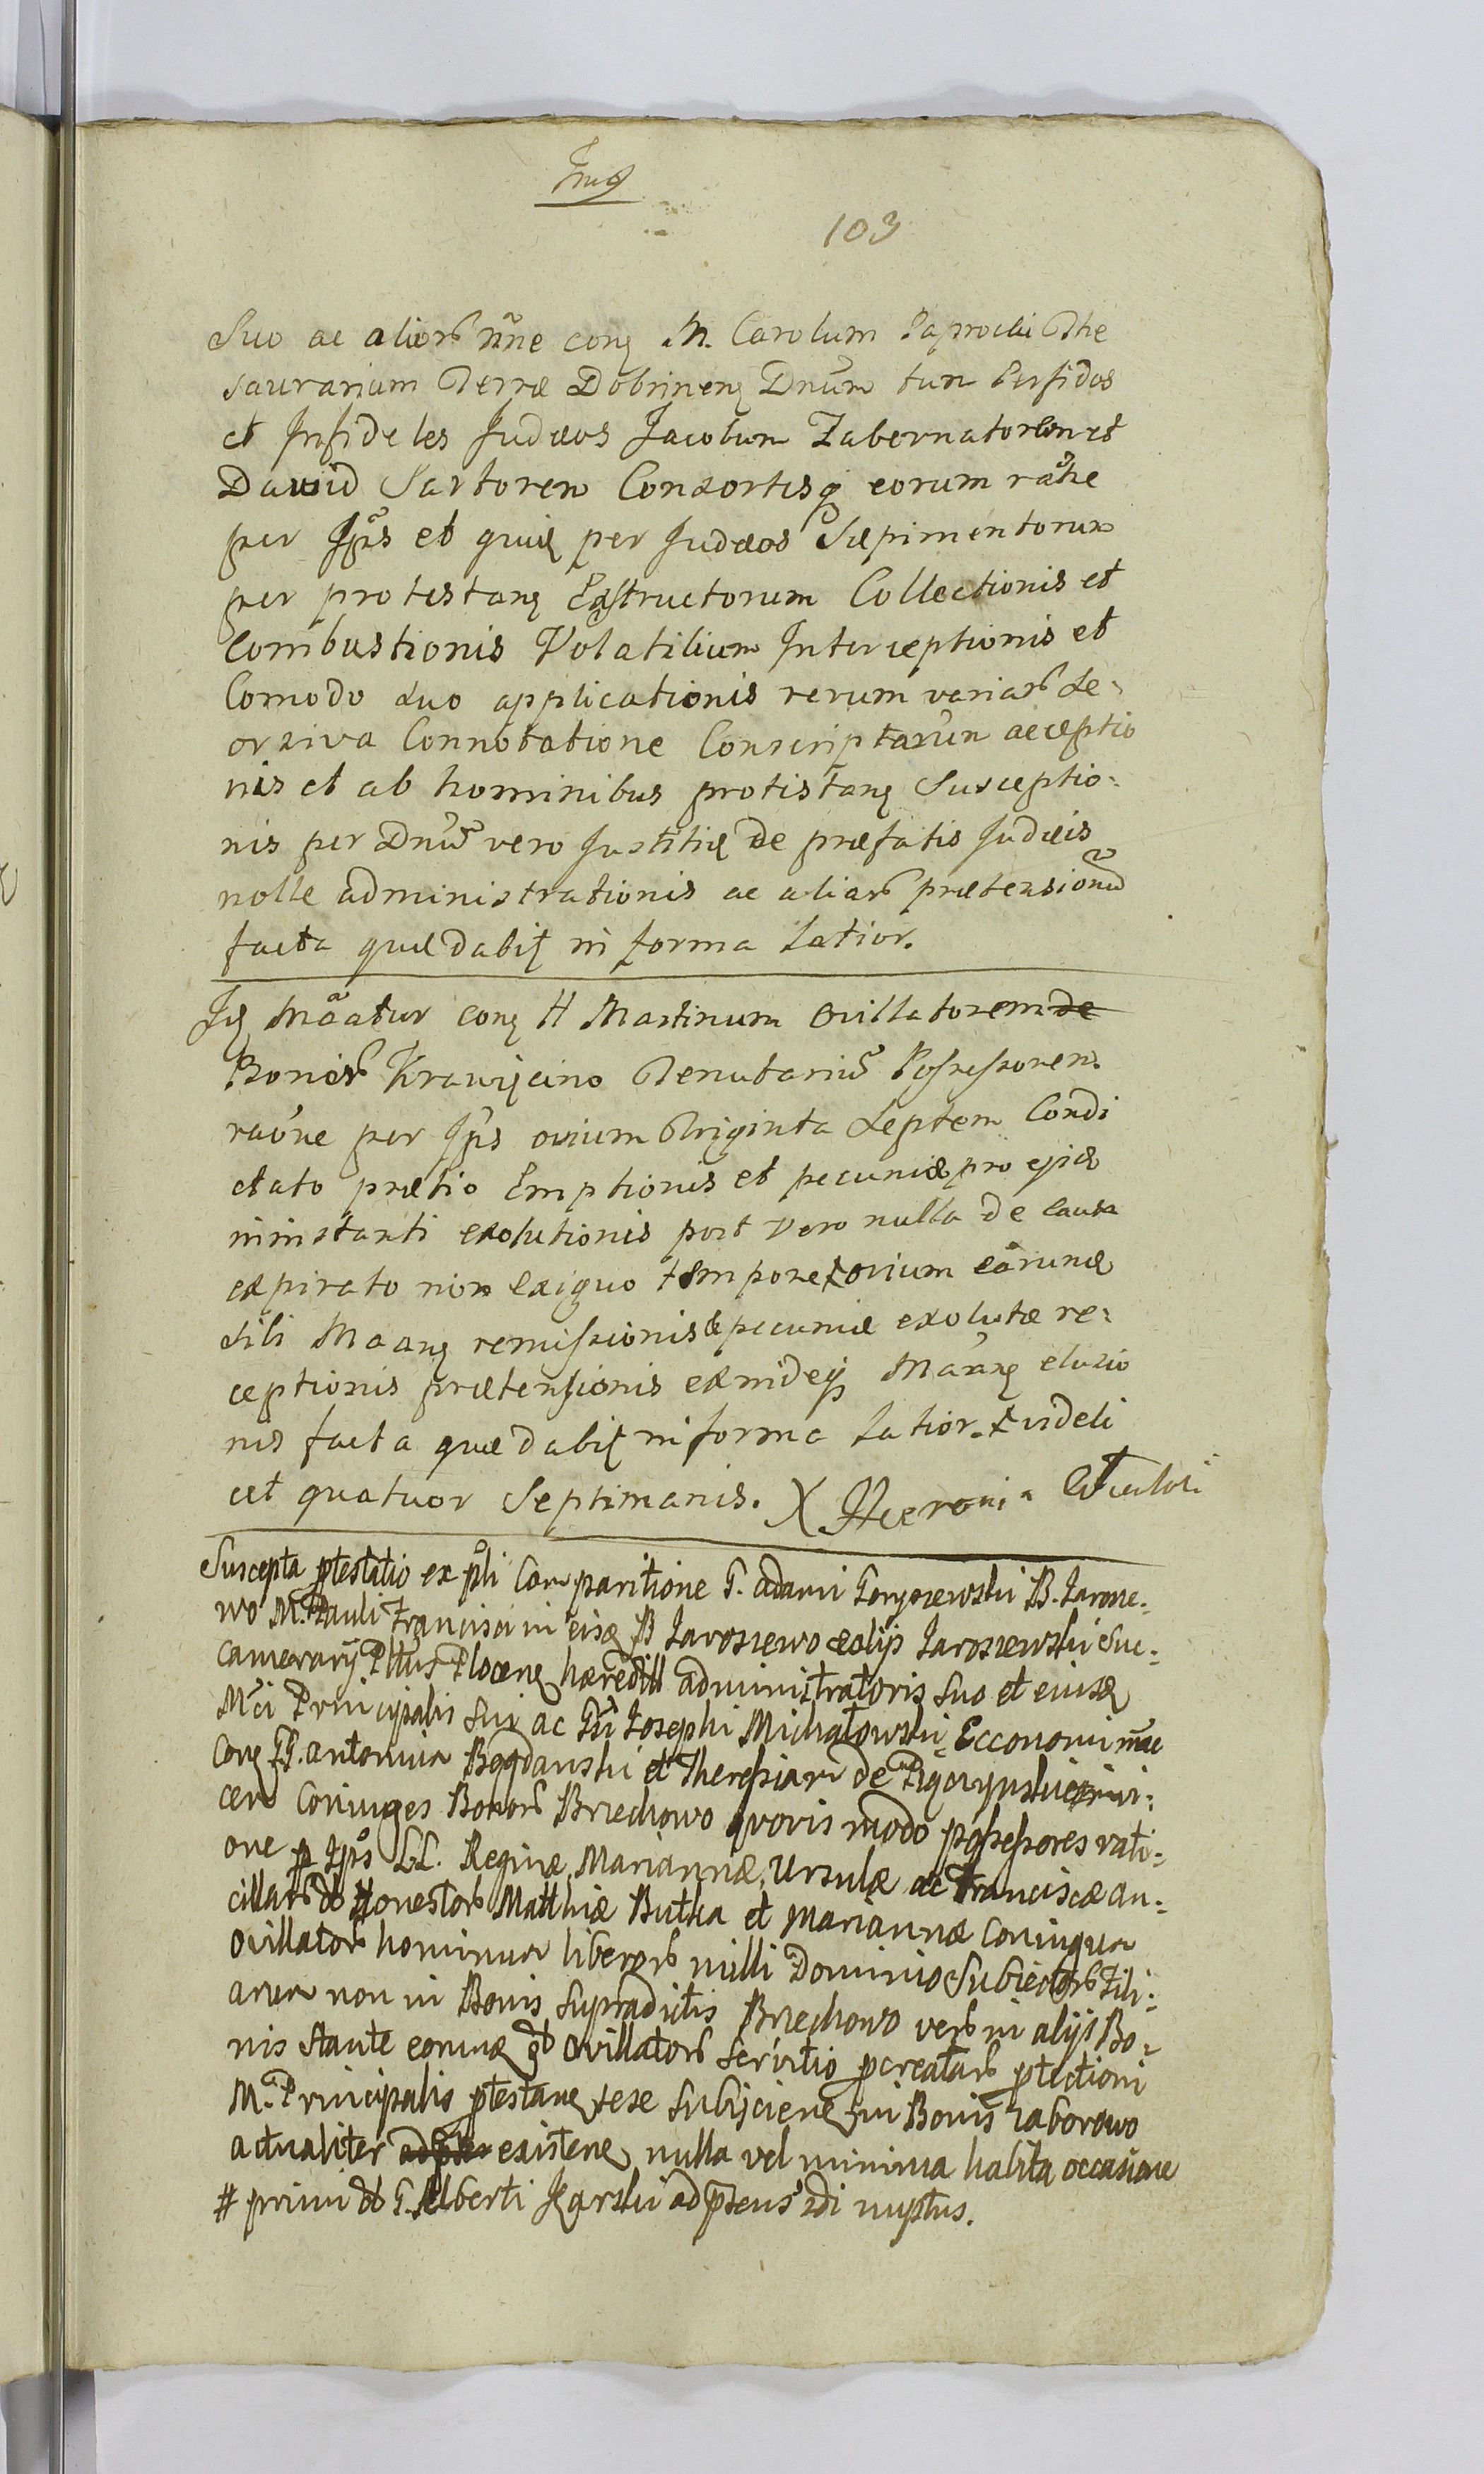 103
Suo ac alior nne cong M. Carolum Paprocki The
saurarium Terræ Dobrinens Dnum tum Perfidos
et Infideles Judæos Jacobum Tabernatorem et
Dawid Sartorem Consortesq eorum raõne
per Ipõs et quid per Judæos Sæpimentorum
per protestans Exstructorum Collectionis et
Combustionis Volatilium Interceptionis et
Comodo suo applicationis rerum variar se-
orsiva Connotatione Conscriptarum acceptio
nis et ab hominibus protestans Susceptio-
nis per Dnum vero Justitiæ de præfatis Judæis
nolle administrationis ac aliar prætensionum
facta quæ dabit in forma latior.
Id Mãatur cong H Martinum Ovillatorem de
Bonor Krawięcino Tenutarium Possessorem
raõne per Ipõs ovium Triginta Septem Condi
ctato prætio Emptionis et pecuniæ pro ejsd
in instanti exolutionis post vero nulla de causa
expirato non exiguo tempore ovium earund
sibi Maans remissionis & pecuniæ exolutæ re-
ceptionis prætensionis exindeq Maans elusio
nis facta quæ dabit in forma latior. videli
cet quatuor Septimanis. X
Suscepta ptestatio ex pli Comparitione G. Adami B. Jarosze-
wo M. Pauli Francisci in eisd B Jaroszewo & alijs Jaroszewski Suc-
camerarij Pttus Plocens hæredit administratoris suo et eiusd
Mci Principalis sui ac Gsi Josephi Michałowski Ecconomi nne
cong GG. Antonium Bogdanski et Theressiam de
cem Coniuges Bonor Brzechowo quovis modo possessores rati-
one p Ipos LL. Reginæ, Mariannæ, Ursulæ ac Franciscæ an-
cillar & Honestor Matthiæ Butka et Mariannæ Coniugum
Ovillator hominum liberor nulli Dominio Subiector Fili-
arum non in Bonis supradictis Brzechowo verb in alijs Bo-
nis stante eorund Ovillator servitio pcreatar ptectioni
M. Principalis ptestans sese subijciens in Bonis Zaborowo
actualiter existens nulla vel minima habita occasione
# primi G. Alberti Karski ad præsens nuptus.